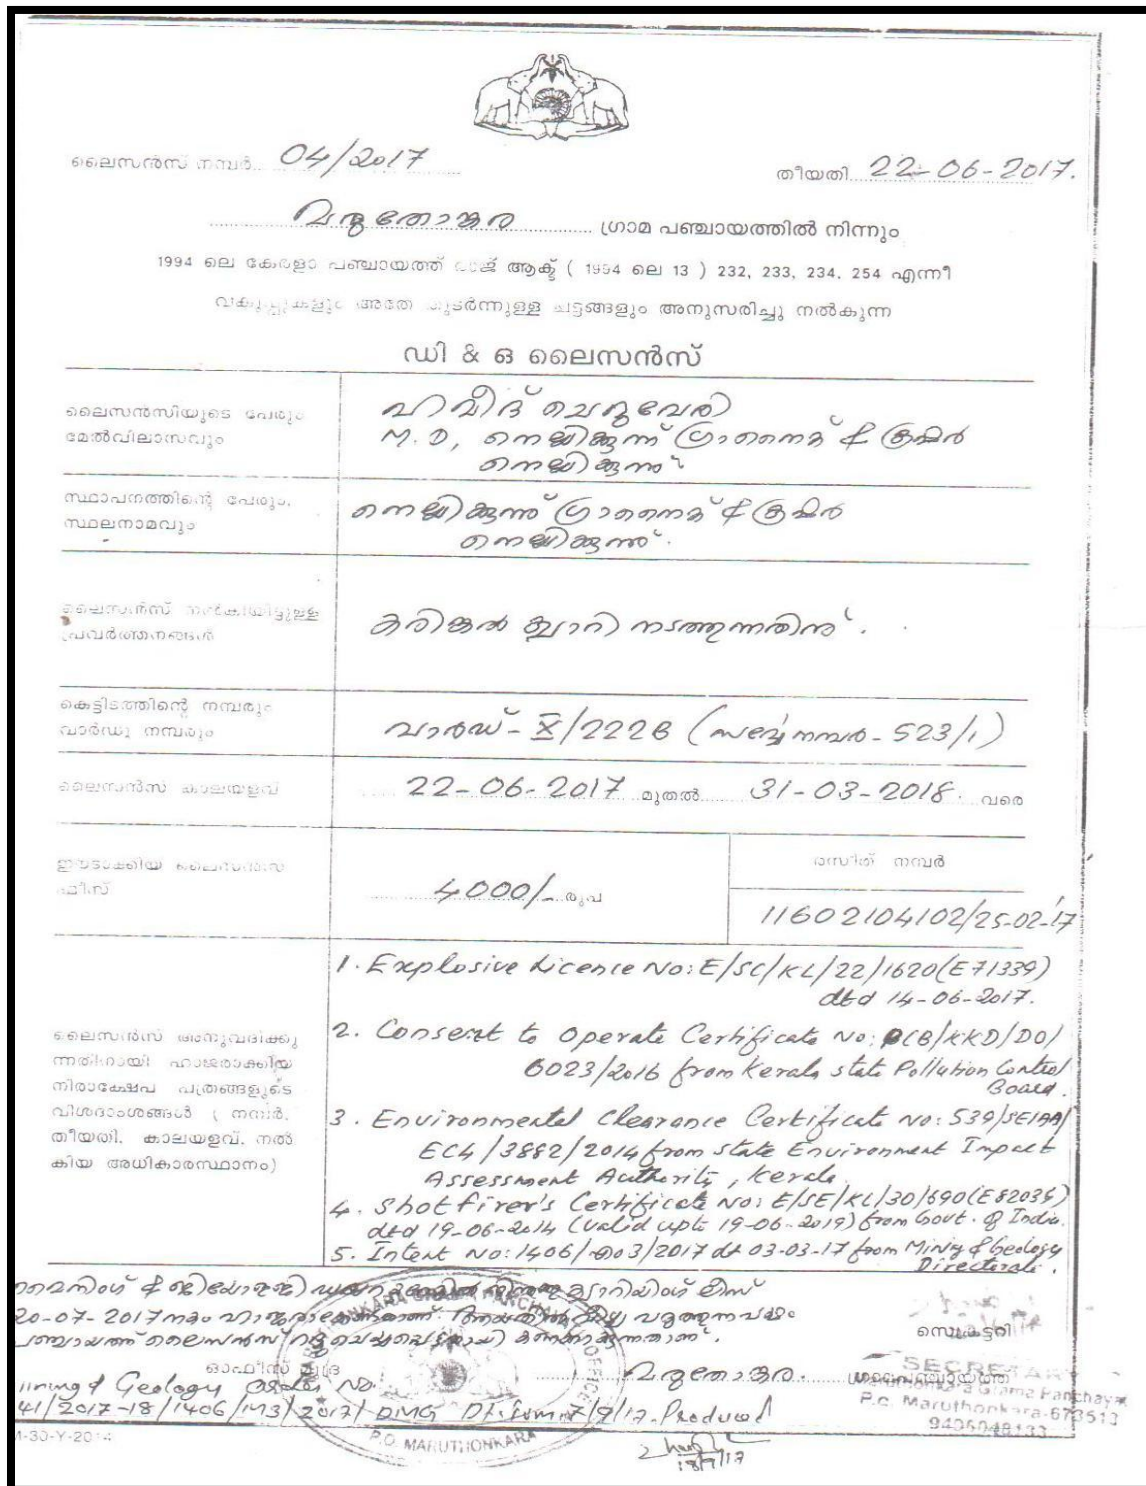 ലൈസൻസ് നമ്പർ. 04/2017
തീയതി 22-06-2017.
മരുതോങ്കര ഗ്രാമ പഞ്ചായത്തിൽ നിന്നും
1994 ലെ കേരളാ പഞ്ചായത്ത് രാജ് ആക്ട് ( 1994 ലെ 13 ) 232, 233, 234, 254 എന്നീ
വകുപ്പുകളും അതേ തുടർന്നുള്ള ചട്ടങ്ങളും അനുസരിച്ചു നൽകുന്ന
ഡി & ഒ ലൈസൻസ്
ലൈസൻസിയുടെ പേരും
മേൽവിലാസവും
ചെറുവേരി
M.D, നെല്ലിക്കുന്ന് ഗ്രാനൈറ്റ് & ക്രഷർ
നെല്ലിക്കുന്ന്
സ്ഥാപനത്തിന്റെ പേരും,
സ്ഥലനാമവും
നെല്ലിക്കുന്ന് ഗ്രാനൈറ്റ് & ക്രഷർ
നെല്ലിക്കുന്ന്.
ലൈസൻസ് നൽകിയിട്ടുള്ള
പ്രവർത്തനങ്ങൾ
കരിങ്കൽ ക്വാറി നടത്തുന്നതിന്.
കെട്ടിടത്തിന്റെ നമ്പരും
വാർഡു നമ്പരും
വാർഡ് - X/222B (സർവ്വെ നമ്പർ - 523/1)
ലൈസൻസ് കാലയളവ്
22-06-2017 മുതൽ 31-03-2018. വരെ
ഈടാക്കിയ ലൈസൻസ്
ഫീസ്
4000/- രൂപ
രസീത് നമ്പർ
11602104102/25-02-17
ലൈസൻസ് അനുവദിക്കു
ന്നതിനായി ഹാജരാക്കിയ
നിരാക്ഷേപ പത്രങ്ങളുടെ
വിശദാംശങ്ങൾ ( നമ്പർ,
തീയതി, കാലയളവ്, നൽ
കിയ അധികാരസ്ഥാനം)
1. Explosive Licence No: E/SC/KL/22/1620(E71339)
dtd 14-06-2017.
2. Consent to Operate Certificate No: PCB/KKD/DO/
6023/2016 from Kerala state Pollution Control
Board.
3. Environmental Clearance Certificate No: 539/SEIAA/
EC4/3882/2014 from State Environment Impact
Assessment Authority, Kerala
4. Shot firer's Certificate No: E/SE/KL/30/690(E82036)
dtd 19-06-2014 (valid upto 19-06-2019) from Govt. of India.
5. Intent No: 1406/എം3/2017 dt 03-03-17 from Mining & Geology
Directorate.
മൈനിംഗ് & ജിയോളജി ക്വാറിയിംഗ് ലീസ്
20-07-2017 നകം ഹാജരാക്കേണ്ടതാണ്. വീഴ്ച വരുത്തുന്നപക്ഷം
പഞ്ചായത്ത് ലൈസൻസ് റദ്ദു ചെയ്യപ്പെട്ടതായി കണക്കാക്കുന്നതാണ്.
സെക്രട്ടറി
ഓഫീസ് മുദ്ര
മരുതോങ്കര. ഗ്രാമപഞ്ചായത്ത്
SECRETARY
Maruthonkara Grama Panchayat
P.O. Maruthonkara-673513
Mining & Geology Order No.
41/2017-18/1406/M3/2017/DMG Produced
P.O. MARUTHONKARA
M-30-Y-2014
18/9/17